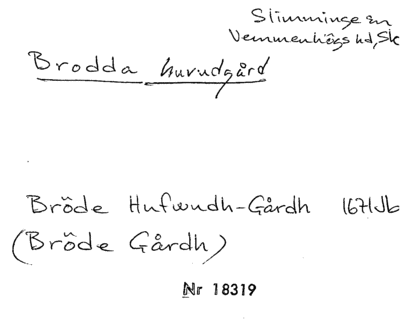 Slimminge sn
Vemmenhögs hd, Sk
Brodda huvudgård
Bröde Hufwudh-Gårdh 1671 Jb
(Bröde Gårdh)
Nr 18319